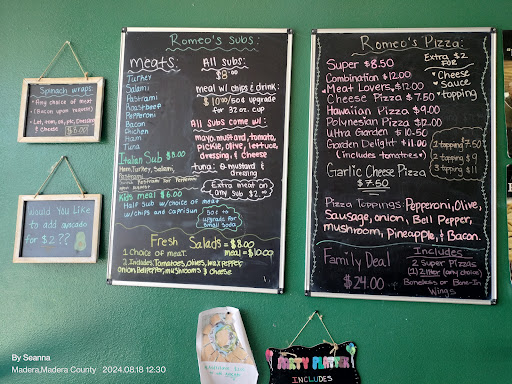 Spinach wraps
Any choice of meat
(Bacon upon reason)
& cheese $6.00
Would You Like
to add avocado
for $2??
Romeo's Subs:
Meats:
Turkey
Salami
Pastrami
Roastbeef
Pepperoni
Bacon
Chicken
Ham
Tuna
Italian Sub $8.00
Ham, Turkey, Salami,
Pastrami
Kids meal $6.00
Half Sub w/choice of meat
w/chips and Caprisun
All Subs:
$8.00
meal w/ chips & drink:
$10.00/50¢ upgrade
for 32 oz. cup
All Subs come w/:
mayo, mustard, tomato,
pickle, olive, lettuce,
dressing, & cheese
tuna: & mustard &
dressing
Extra meat on
any sub $2
50¢ to
upgrade for
small soda
Fresh Salads = $8.00
1 Choice of meat. meal = $10.00
Includes: Tomatoes, olives, wax pepper,
onion, Bell Pepper, mushrooms & cheese
Romeo's Pizza:
Super $8.50
Combination $12.00
Meat Lovers $12.00
Cheese Pizza $7.50
Hawaiian Pizza $9.00
Polynesian Pizza $12.00
Ultra Garden $10.50
Garden Delight $11.00
(includes tomatoes)
Garlic Cheese Pizza
$7.50
Extra $2
FOR
• Cheese
• Sauce
• topping
1 topping 7.50
2 topping $9
3 topping $11
Pizza Toppings: Pepperoni, Olive,
Sausage, onion, Bell Pepper,
mushroom, Pineapple, & Bacon.
Family Deal
$24.00
Includes
2 Super Pizzas
(1) 2 liter (any choice)
Boneless or Bone-In
Wings
PARTY PLATTER
INCLUDES
By Seanna
Madera,Madera County 2024.08.18 12:30